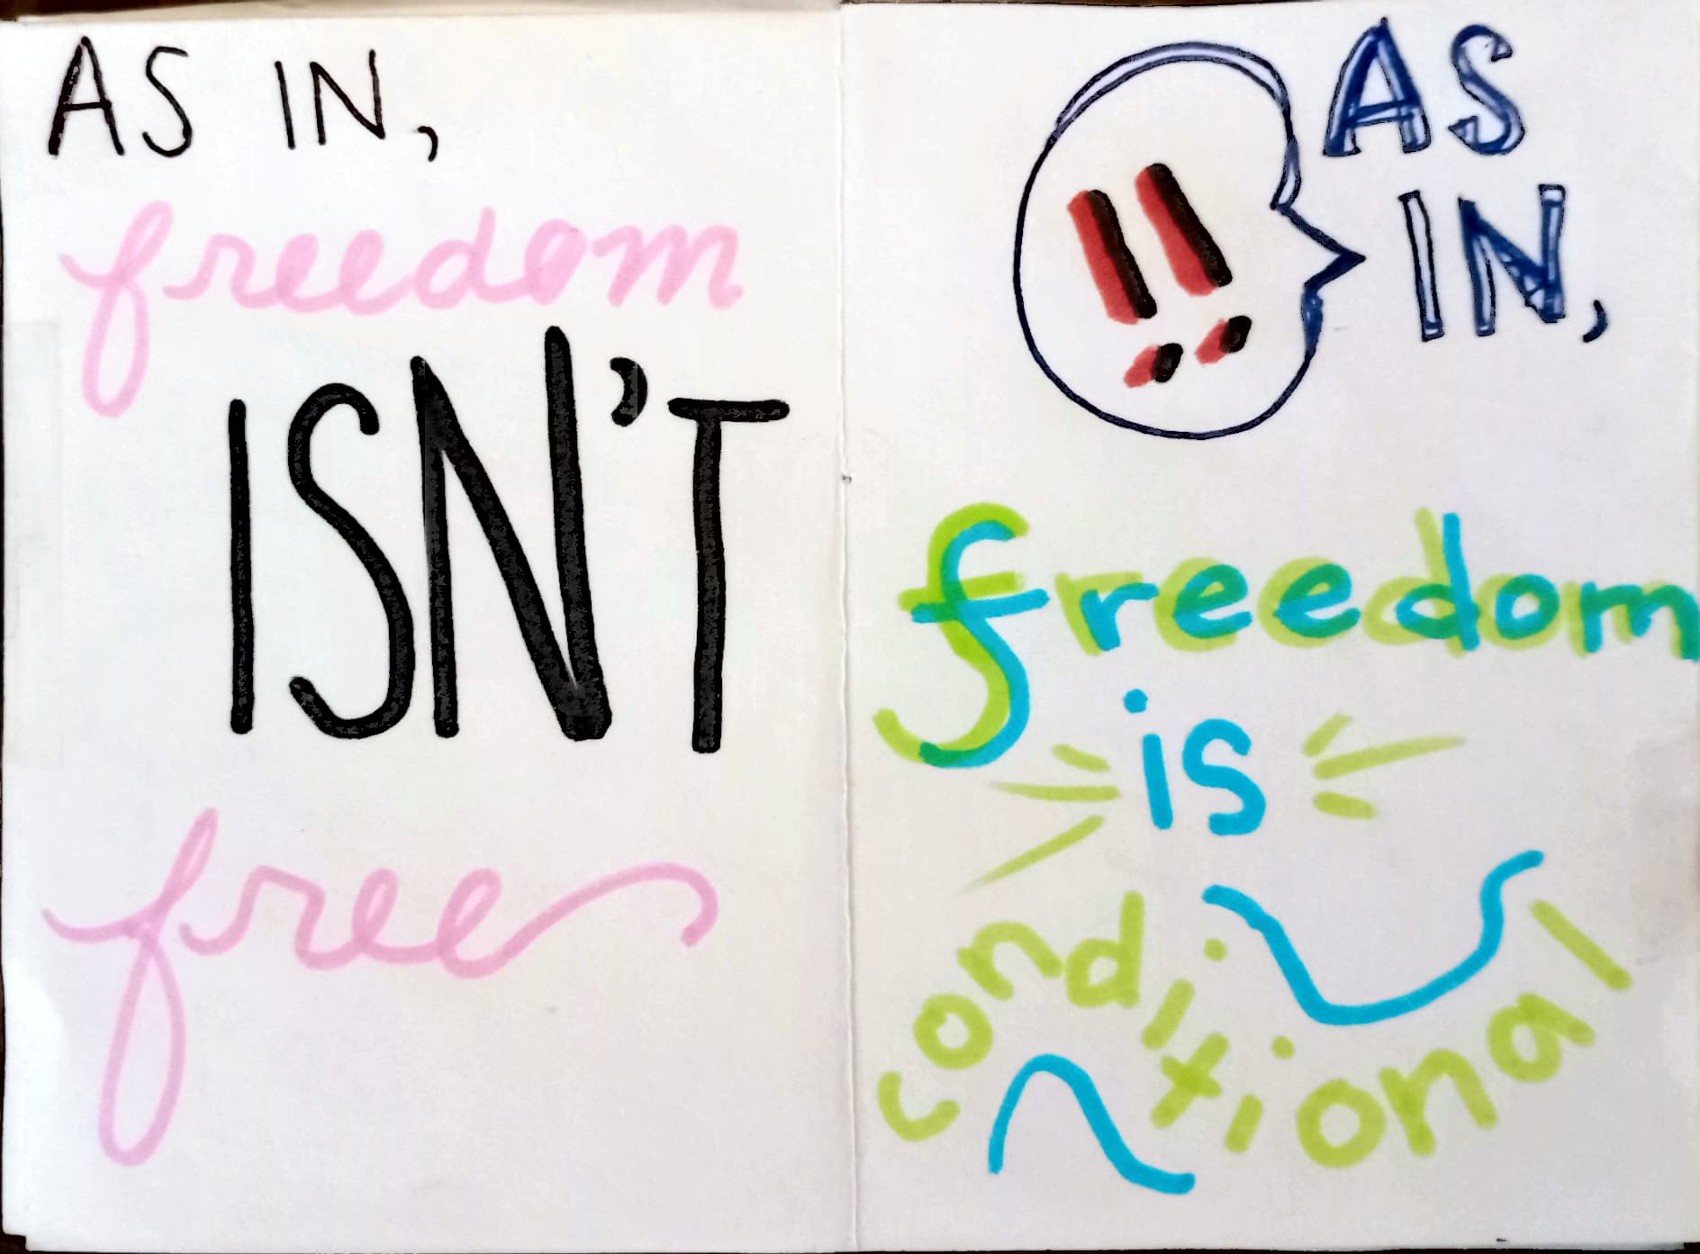 AS IN,
freedom
ISN'T
free
!!
AS
IN,
freedom
is
conditional